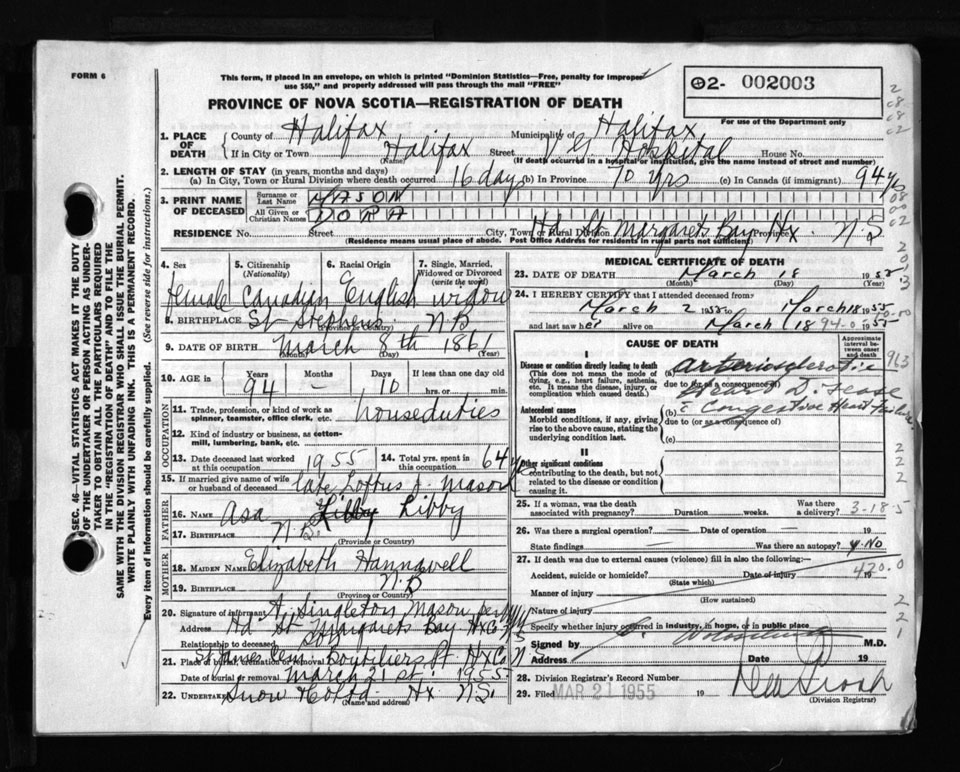 FORM 6
This form, if placed in an envelope, on which is printed "Dominion Statistics—Free, penalty for improper
use $50," and properly addressed will pass through the mail "FREE"
02- 002003
For use of the Department only
PROVINCE OF NOVA SCOTIA—REGISTRATION OF DEATH
1. PLACE OF DEATH
County of Halifax Municipality of Halifax
If in City or Town Halifax Street V G Hospital House No.
(Name) (If death occurred in a hospital or institution, give the name instead of street and number)
2. LENGTH OF STAY (in years, months and days)
(a) In City, Town or Rural Division where death occurred 16 days (b) In Province 70 yrs (c) In Canada (if immigrant) 94 yrs
3. PRINT NAME OF DECEASED
Surname or Last Name MASON
All Given or Christian Names DORA
RESIDENCE No. Street City, Town or Rural Division Hd St Margarets Bay Hx Province N.S
(Residence means usual place of abode. Post Office Address for residents in rural parts not sufficient)
4. Sex female
5. Citizenship (Nationality) Canadian
6. Racial Origin English
7. Single, Married, Widowed or Divorced (write the word) widow
8. BIRTHPLACE St Stephens N B
9. DATE OF BIRTH March 8th 1861
(Month) (Day) (Year)
10. AGE in Years 94 Months — Days 10 If less than one day old hrs. or min.
OCCUPATION
11. Trade, profession, or kind of work as spinner, teamster, office clerk, etc. houseduties
12. Kind of industry or business, as cotton-mill, lumbering, bank, etc.
13. Date deceased last worked at this occupation 1955
14. Total yrs. spent in this occupation 64 yrs
15. If married give name of wife or husband of deceased late Loftus J. Mason
FATHER
16. Name Asa Libby Libby
17. Birthplace N.S.
(Province or Country)
MOTHER
18. MAIDEN NAME Elizabeth Hannawell
19. BIRTHPLACE N.B
(Province or Country)
20. Signature of informant A. Singleton Mason per
Address Hd St Margarets Bay Hx Co
Relationship to deceased Son
21. Place of burial, cremation or removal St James Cem. Boutiliers Pt. Hx Co N S
Date of burial or removal March 21 st. 1955
22. Undertaker Snow Co Ltd. Hx N.S.
(Name and address)
MEDICAL CERTIFICATE OF DEATH
23. DATE OF DEATH March 18 1955
(Month) (Day)
24. I HEREBY CERTIFY that I attended deceased from:
March 2 1955 to March 18 1955
and last saw her alive on March 18 1955
94-0
CAUSE OF DEATH
Approximate interval between onset and death
I
Disease or condition directly leading to death
(This does not mean the mode of dying, e.g., heart failure, asthenia, etc. It means the disease, injury, or complication which caused death.)
(a) Arteriosclerotic
due to (or as a consequence of)
Heart Disease
c Congestive Heart Failure
Antecedent causes
Morbid conditions, if any, giving rise to the above cause, stating the underlying condition last.
(b)
due to (or as a consequence of)
(c)
II
Other significant conditions
contributing to the death, but not related to the disease or condition causing it.
25. If a woman, was the death associated with pregnancy? Duration weeks. Was there a delivery? 3-18-5
26. Was there a surgical operation? — Date of operation — 19
State findings Was there an autopsy? No
27. If death was due to external causes (violence) fill in also the following:—
420.0
Accident, suicide or homicide? Date of injury 19
(State which)
Manner of injury
(How sustained)
Nature of injury
Specify whether injury occurred in industry, in home, or in public place
Signed by M.D.
Address Date 19
28. Division Registrar's Record Number
29. Filed MAR 21 1955 19
(Division Registrar)
SEC. 46—VITAL STATISTICS ACT MAKES IT THE DUTY
OF THE UNDERTAKER OR PERSON ACTING AS UNDER-
TAKER TO OBTAIN ALL THE PARTICULARS REQUIRED
IN THE "REGISTRATION OF DEATH" AND TO FILE THE
SAME WITH THE DIVISION REGISTRAR WHO SHALL ISSUE THE BURIAL PERMIT.
WRITE PLAINLY WITH UNFADING INK. THIS IS A PERMANENT RECORD.
Every item of information should be carefully supplied. (See reverse side for instructions.)